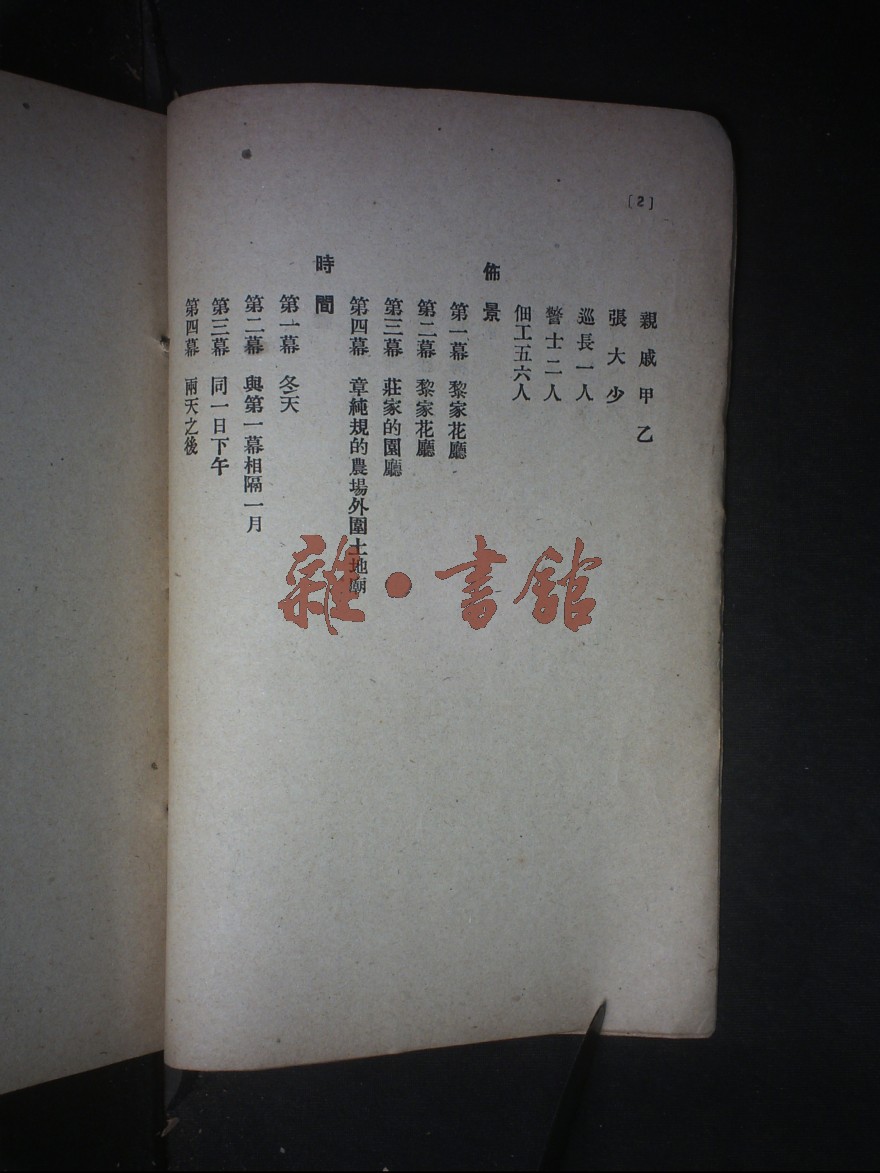 [2]
親戚甲乙
張大少
巡長一人
警士二人
佃工五六人
佈景
第一幕 黎家花廳
第二幕 黎家花廳
第三幕 莊家的園廳
第四幕 章純規的農場外圍土地廟
時間
第一幕 冬天
第二幕 與第一幕相隔一月
第三幕 同一日下午
第四幕 兩天之後
雜·書館